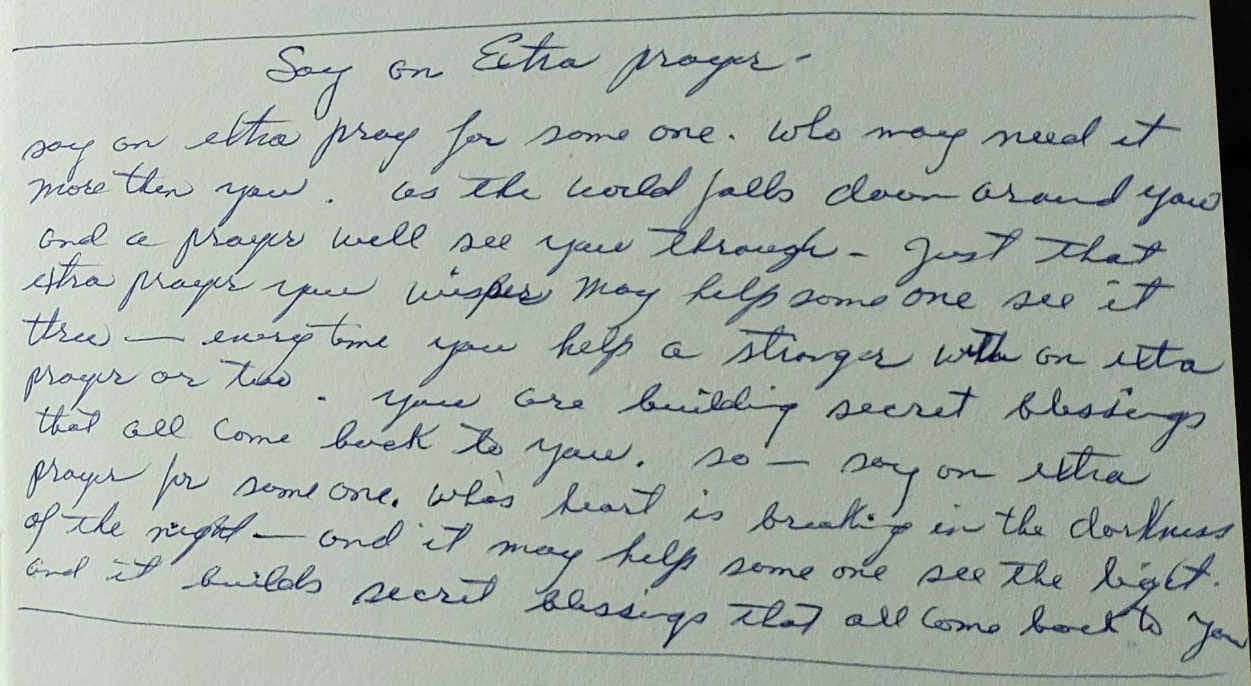 Say an Extra prayer -
say an extra pray for some one. who may need it
more then you. as the world falls down around you
and a prayer well see you through - Just that
extra prayer you wisper may help some one see it
threw - every time you help a stranger with an exta
prayer or two. you are building secret blessings
that all come back to you. so - say an extra
prayer for some one. who's heart is breaking in the darkness
of the night - and it may help some one see the light.
and it builds secret blessings that all come back to you